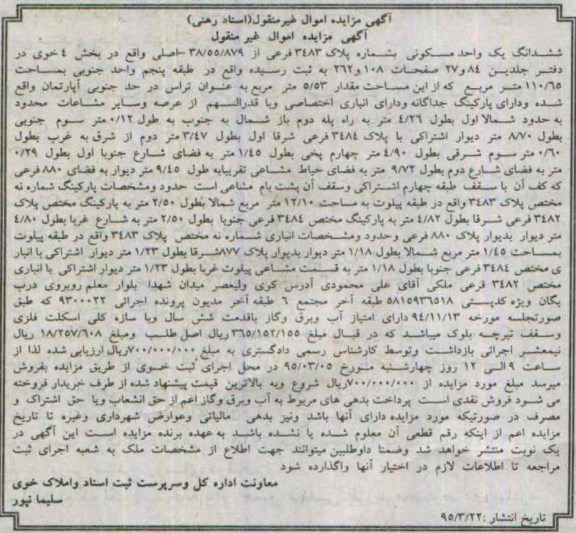 آگهی مزایده اموال غیرمنقول(اسناد رهنی)
آگهی مزایده اموال غیر منقول
ششدانگ یک واحد مسکونی بشماره پلاک ۳۴۸۳ فرعی از ۳۸/۵۵/۸۷۹ -اصلی واقع در بخش ۴ خوی در
دفتر جلدین ۸۴ و۲۷ صفحات ۱۰۸ و۲۶۲ به ثبت رسیده واقع در طبقه پنجم واحد جنوبی بمساحت
۱۱۰/۶۵ متر مربع که از این مساحت مقدار ۵/۵۳ متر مربع به عنوان تراس در حد جنوبی آپارتمان واقع
شده ودارای پارکینگ جداگانه ودارای انباری اختصاصی وبا قدرالسهم از عرصه وسایر مشاعات محدود
به حدود شمالا اول بطول ۴/۲۶ متر به راه پله دوم باز شمال به جنوب به طول ۰/۱۲ متر سوم جنوبی
بطول ۸/۷۰ متر دیوار اشتراکی با پلاک ۳۴۸۴ فرعی شرقا اول بطول ۳/۴۷ متر دوم از شرق به غرب بطول
۰/۶۰ متر سوم شرقی بطول ۴/۹۰ متر چهارم پخی بطول ۱/۴۵ متر به فضای شارع جنوبا اول بطول ۰/۲۹
متر به فضای شارع دوم بطول ۹/۷۲ متر به فضای حیاط مشاعی تقریبابه طول ۹/۴۵ متر دیوار به فضای ۸۸۰ فرعی
که کف آن با سقف طبقه چهارم اشتراکی وسقف آن پشت بام مشاعی است حدود ومشخصات پارکینگ شماره نه
مختص پلاک ۳۴۸۳ واقع در طبقه پیلوت به مساحت ۱۲/۱۰ متر مربع شمالا بطول ۲/۵۰ متر به پارکینگ مختص پلاک
۳۴۸۲ فرعی شرقا بطول ۴/۸۲ متر به پارکینگ مختص ۳۴۸۴ فرعی جنوبا بطول ۲/۵۰ متر به شارع غربا بطول ۴/۸۰
متر دیوار بدیوار پلاک ۸۸۰ فرعی وحدود ومشخصات انباری شماره نه مختص پلاک ۳۴۸۳ واقع در طبقه پیلوت
بمساحت ۱/۴۵ متر مربع شمالا بطول ۱/۱۸ متر دیوار بدیوار پلاک ۸۷۷شرقا بطول ۱/۲۳ متر دیوار اشتراکی با انبار
ی مختص ۳۴۸۴ فرعی جنوبا بطول ۱/۱۸ متر به قسمت مشاعی پیلوت غربا بطول ۱/۲۳ متر دیوار اشتراکی با انباری
مختص ۳۴۸۲ فرعی ملکی آقای علی محمودی آدرس کوی ولیعصر میدان شهدا بلوار معلم روبروی درب
یگان ویژه کدپستی ۵۸۱۵۹۳۶۵۱۸ طبقه آخر مجتمع ۶ طبقه آخر مدیون پرونده اجرائی ۹۳۰۰۰۲۲ که طبق
صورتجلسه مورخه ۹۴/۱۱/۱۳ دارای امتیاز آب وبرق وگاز باقدمت شش سال وبا سازه کلی اسکلت فلزی
وسقف تیرچه بلوک میباشد که در قبال مبلغ ۳۶۵/۱۵۲/۱۵۵ ریال اصل طلب ومبلغ ۱۸/۲۵۷/۶۰۸ ریال
نیمعشر اجرائی بازداشت وتوسط کارشناس رسمی دادگستری به مبلغ ۷۰۰/۰۰۰/۰۰۰ریال ارزیابی شده لذا از
ساعت ۹ الی ۱۲ روز چهارشنبه مورخ ۹۵/۰۳/۰۵ در محل اجرای ثبت خوی از طریق مزایده بفروش
میرسد مبلغ مورد مزایده از ۷۰۰/۰۰۰/۰۰۰ریال شروع وبه بالاترین قیمت پیشنهاد شده از طرف خریدار فروخته
می شود فروش نقدی است پرداخت بدهی های مربوط به آب وبرق وگاز اعم از حق انشعاب ویا حق اشتراک و
مصرف در صورتیکه مورد مزایده دارای آنها باشد ونیز بدهی مالیاتی وعوارض شهرداری وغیره تا تاریخ
مزایده اعم از اینکه رقم قطعی آن معلوم شده یا نشده باشد به عهده برنده مزایده است این آگهی در
یک نوبت منتشر خواهد شد وضمنا داوطلبین میتوانند جهت اطلاع از مشخصات ملک به شعبه اجرای ثبت
مراجعه تا اطلاعات لازم در اختیار آنها واگذارده شود
معاونت اداره کل وسرپرست ثبت اسناد واملاک خوی
سلیما نپور
تاریخ انتشار :۹۵/۳/۲۲